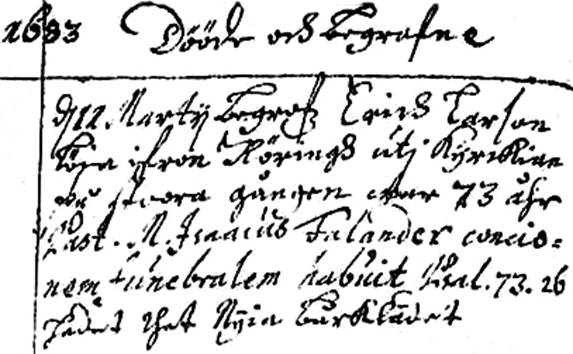 1683 Dööde och begrafne
d 12 Martij begrofz Erich Larson
ifron Röringh utj Kyrckian
på stora gången war 73 åhr
Past. M. Isaacus Falander concio=
nem funebralem habuit Psal. 73. 26
thet Nyia bårklädet